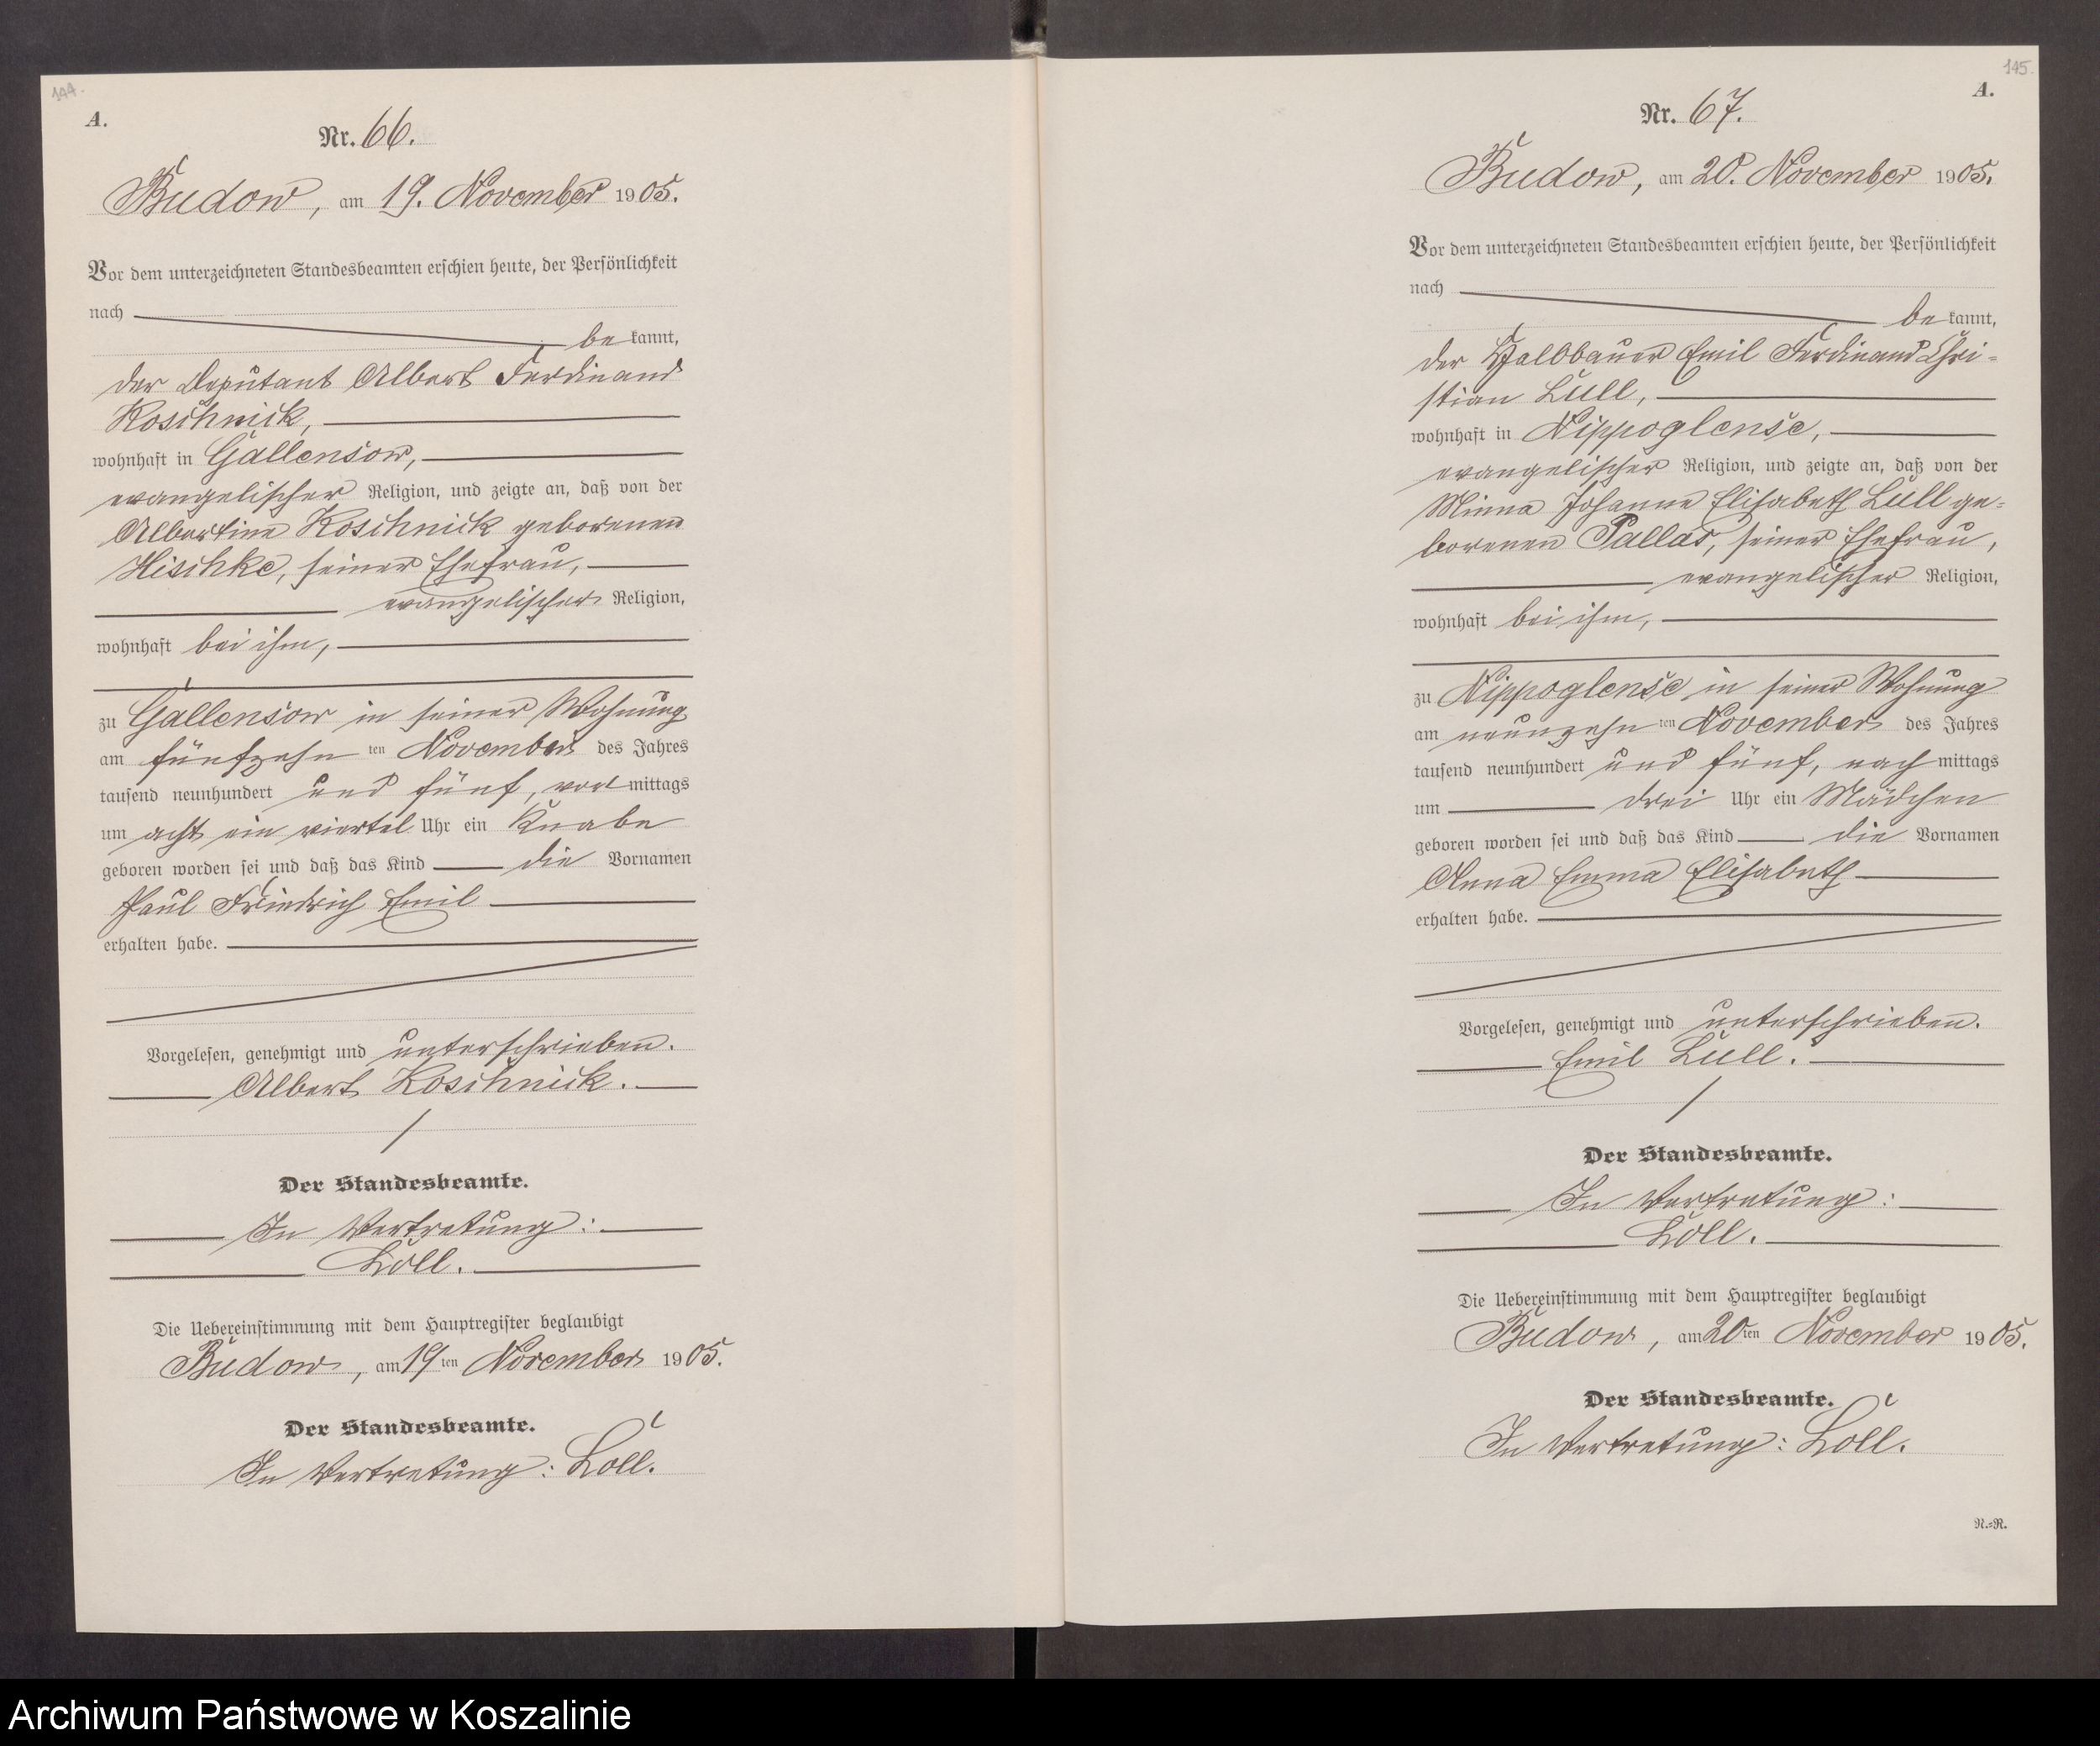 144.
A.
Nr. 66.
Budow, am 19. November 1905.
Vor dem unterzeichneten Standesbeamten erschien heute, der Persönlichkeit
nach
be kannt,
der Deputant Albert Ferdinand
Koschnick,
wohnhaft in Gallensow,
evangelischer Religion, und zeigte an, daß von der
Albertine Koschnick geborenen
Hischke, seiner Ehefrau,
evangelischer Religion,
wohnhaft bei ihm,
zu Gallensow in seiner Wohnung
am fünfzehn ten November des Jahres
tausend neunhundert und fünf, vor mittags
um acht ein viertel Uhr ein Knabe
geboren worden sei und daß das Kind die Vornamen
Paul Friedrich Emil
erhalten habe.
Vorgelesen, genehmigt und unterschrieben.
Albert Koschnick.
Der Standesbeamte.
In Vertretung:
Löll.
Die Uebereinstimmung mit dem Hauptregister beglaubigt
Budow, am 19 ten November 1905.
Der Standesbeamte.
In Vertretung: Löll.
145.
A.
Nr. 67.
Budow, am 20. November 1905.
Vor dem unterzeichneten Standesbeamten erschien heute, der Persönlichkeit
nach
be kannt,
der Halbbauer Emil Ferdinand Chri-
stian Lüll,
wohnhaft in Nippoglense,
evangelischer Religion, und zeigte an, daß von der
Minna Johanne Elisabeth Lüll ge-
borenen Pallas, seiner Ehefrau,
evangelischer Religion,
wohnhaft bei ihm,
zu Nippoglense in seiner Wohnung
am neunzehn ten November des Jahres
tausend neunhundert und fünf, nach mittags
um drei Uhr ein Mädchen
geboren worden sei und daß das Kind die Vornamen
Anna Emma Elisabeth
erhalten habe.
Vorgelesen, genehmigt und unterschrieben.
Emil Lüll.
Der Standesbeamte.
In Vertretung:
Löll.
Die Uebereinstimmung mit dem Hauptregister beglaubigt
Budow, am 20 ten November 1905.
Der Standesbeamte.
In Vertretung: Löll.
N.=R.
Archiwum Państwowe w Koszalinie